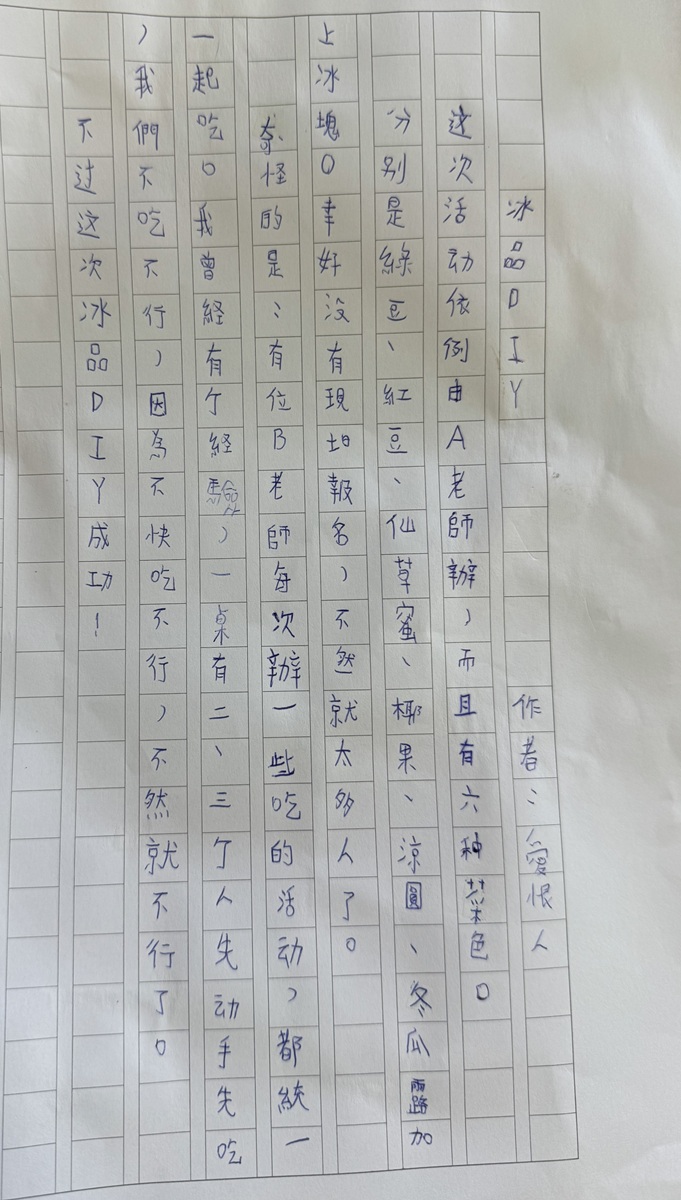 冰品DIY 作者：愛恨人
这次活动依例由A老師辦，而且有六种菜色。
分別是綠豆、紅豆、仙草蜜、椰果、涼圓、冬瓜露加
上冰塊。幸好沒有現場報名，不然就太多人了。
奇怪的是：有位B老師每次辦一些吃的活动，都統一
一起吃。我曾経有个経驗，一桌有二、三个人先动手先吃
，我們不吃不行，因為不快吃不行，不然就不行了。
不过这次冰品DIY成功！